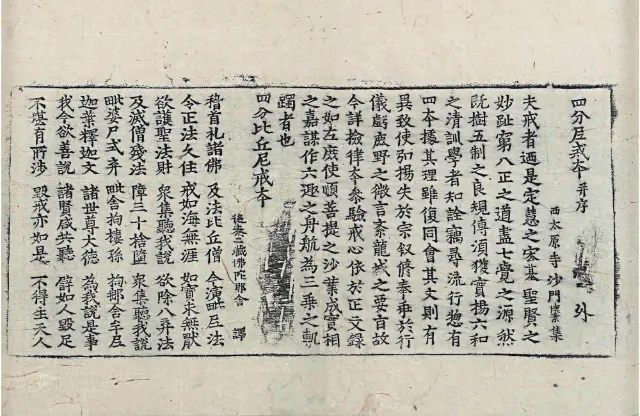 四分尼戒本并序　外
西太原寺沙門懷素集
夫戒者迺是定慧之宏基聖賢之
妙趾窮八正之道盡七覺之源然
既樹五制之良規傳須獲實揚六和
之清訓學者知詮竊尋流行惣有
四本據其理雖復同會其文則有
異致使弘揚失於宗叙修奉乖於行
儀虧鹿野之微言紊龍城之要旨故
今詳撿律本參驗戒心依於正文錄
之如左庶使順菩提之沙業成實相
之嘉謀作六趣之舟航為三乘之軌
躅者也
四分比丘尼戒本
後秦三藏佛陀耶舍　譯
稽首礼諸佛　及法比丘僧　今演毗尼法
令正法久住　戒如海無涯　如寶求無猒
欲護聖法財　衆集聽我說　欲除八弃法
及滅僧殘法　障三十捨墮　衆集聽我說
毗婆尸式弃　毗舍拘樓孫　拘那含牟尼
迦葉釋迦文　諸世尊大德　為我說是事
我今欲善說　諸賢咸共聽　譬如人毀足
不堪有所涉　毀戒亦如是　不得生天人